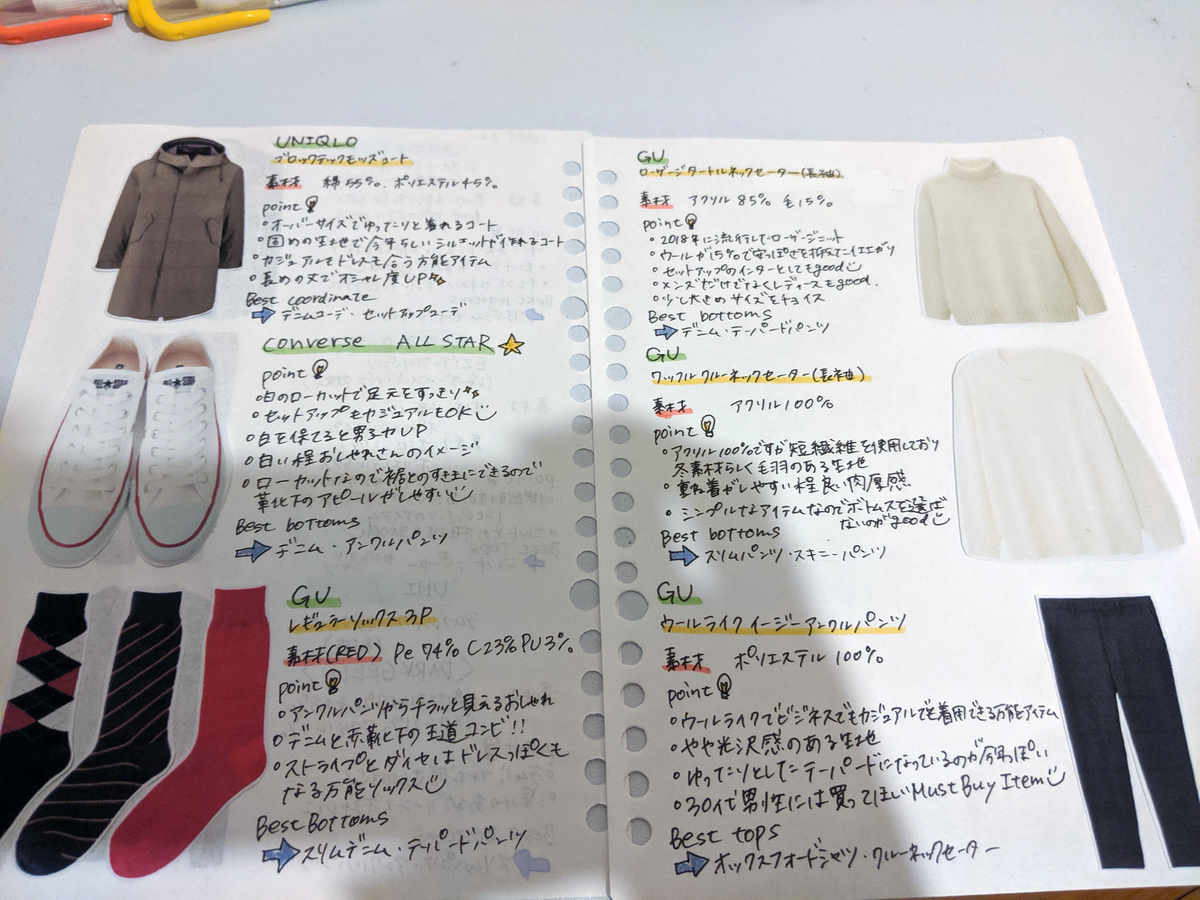 UNIQLO
ブロックテックモッズコート
素材 綿55%、ポリエステル45%
point
・オーバーサイズでゆったりと着れるコート
・固めの生地で今年らしいシルエットが作れるコート
・カジュアルもドレスも合う万能アイテム
・長めの丈でオシャレ度UP
Best coordinate
デニムコーデ・セットアップコーデ
converse ALL STAR
point
・白のローカットで足元をすっきり
・セットアップもカジュアルもOK
・白を保てると男子力UP
・白い程おしゃれさんのイメージ
・ローカットなので裾とのすき間にできるので
靴下のアピールがしやすい
Best bottoms
デニム・アンクルパンツ
GU
レギュラーソックス3P
素材(RED) Pe 74% C23% PU3%
point
・アンクルパンツからチラッと見えるおしゃれ
・デニムと赤靴下の王道コンビ!!
・ストライプとダイヤはドレスっぽくも
なる万能ソックス
Best Bottoms
スリムデニム・テーパードパンツ
GU
ローゲージタートルネックセーター(長袖)
素材 アクリル85% 毛15%
point
・2018年に流行したローゲージニット
・ウールが15%で安っぽさを抑えた仕上がり
・セットアップのインナーとしてもgood
・メンズだけでなくレディースもgood.
・少し大きめサイズをチョイス
Best bottoms
デニム・テーパードパンツ
GU
ワッフルクルーネックセーター(長袖)
素材 アクリル100%
point
・アクリル100%ですが短繊維を使用しており
冬素材らしく毛羽のある生地
・重ね着がしやすい程良い肉厚感
・シンプルなアイテムなのでボトムスを選ば
ないのがgood
Best bottoms
スリムパンツ・スキニーパンツ
GU
ウールライクイージーアンクルパンツ
素材 ポリエステル100%
point
・ウールライクでビジネスでもカジュアルでも着用できる万能アイテム
・やや光沢感のある生地
・ゆったりとしたテーパードになっているのが今年っぽい
・30代男性には買ってほしいMust Buy Item
Best tops
オックスフォードシャツ・クルーネックセーター